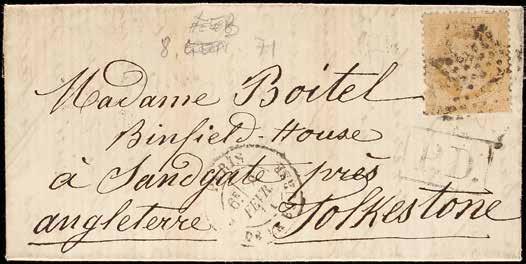 8 71
Madame Boitel
Binfield-House
à Sandgate près
angleterre Folkestone
PARIS
FEVR.
P.D.